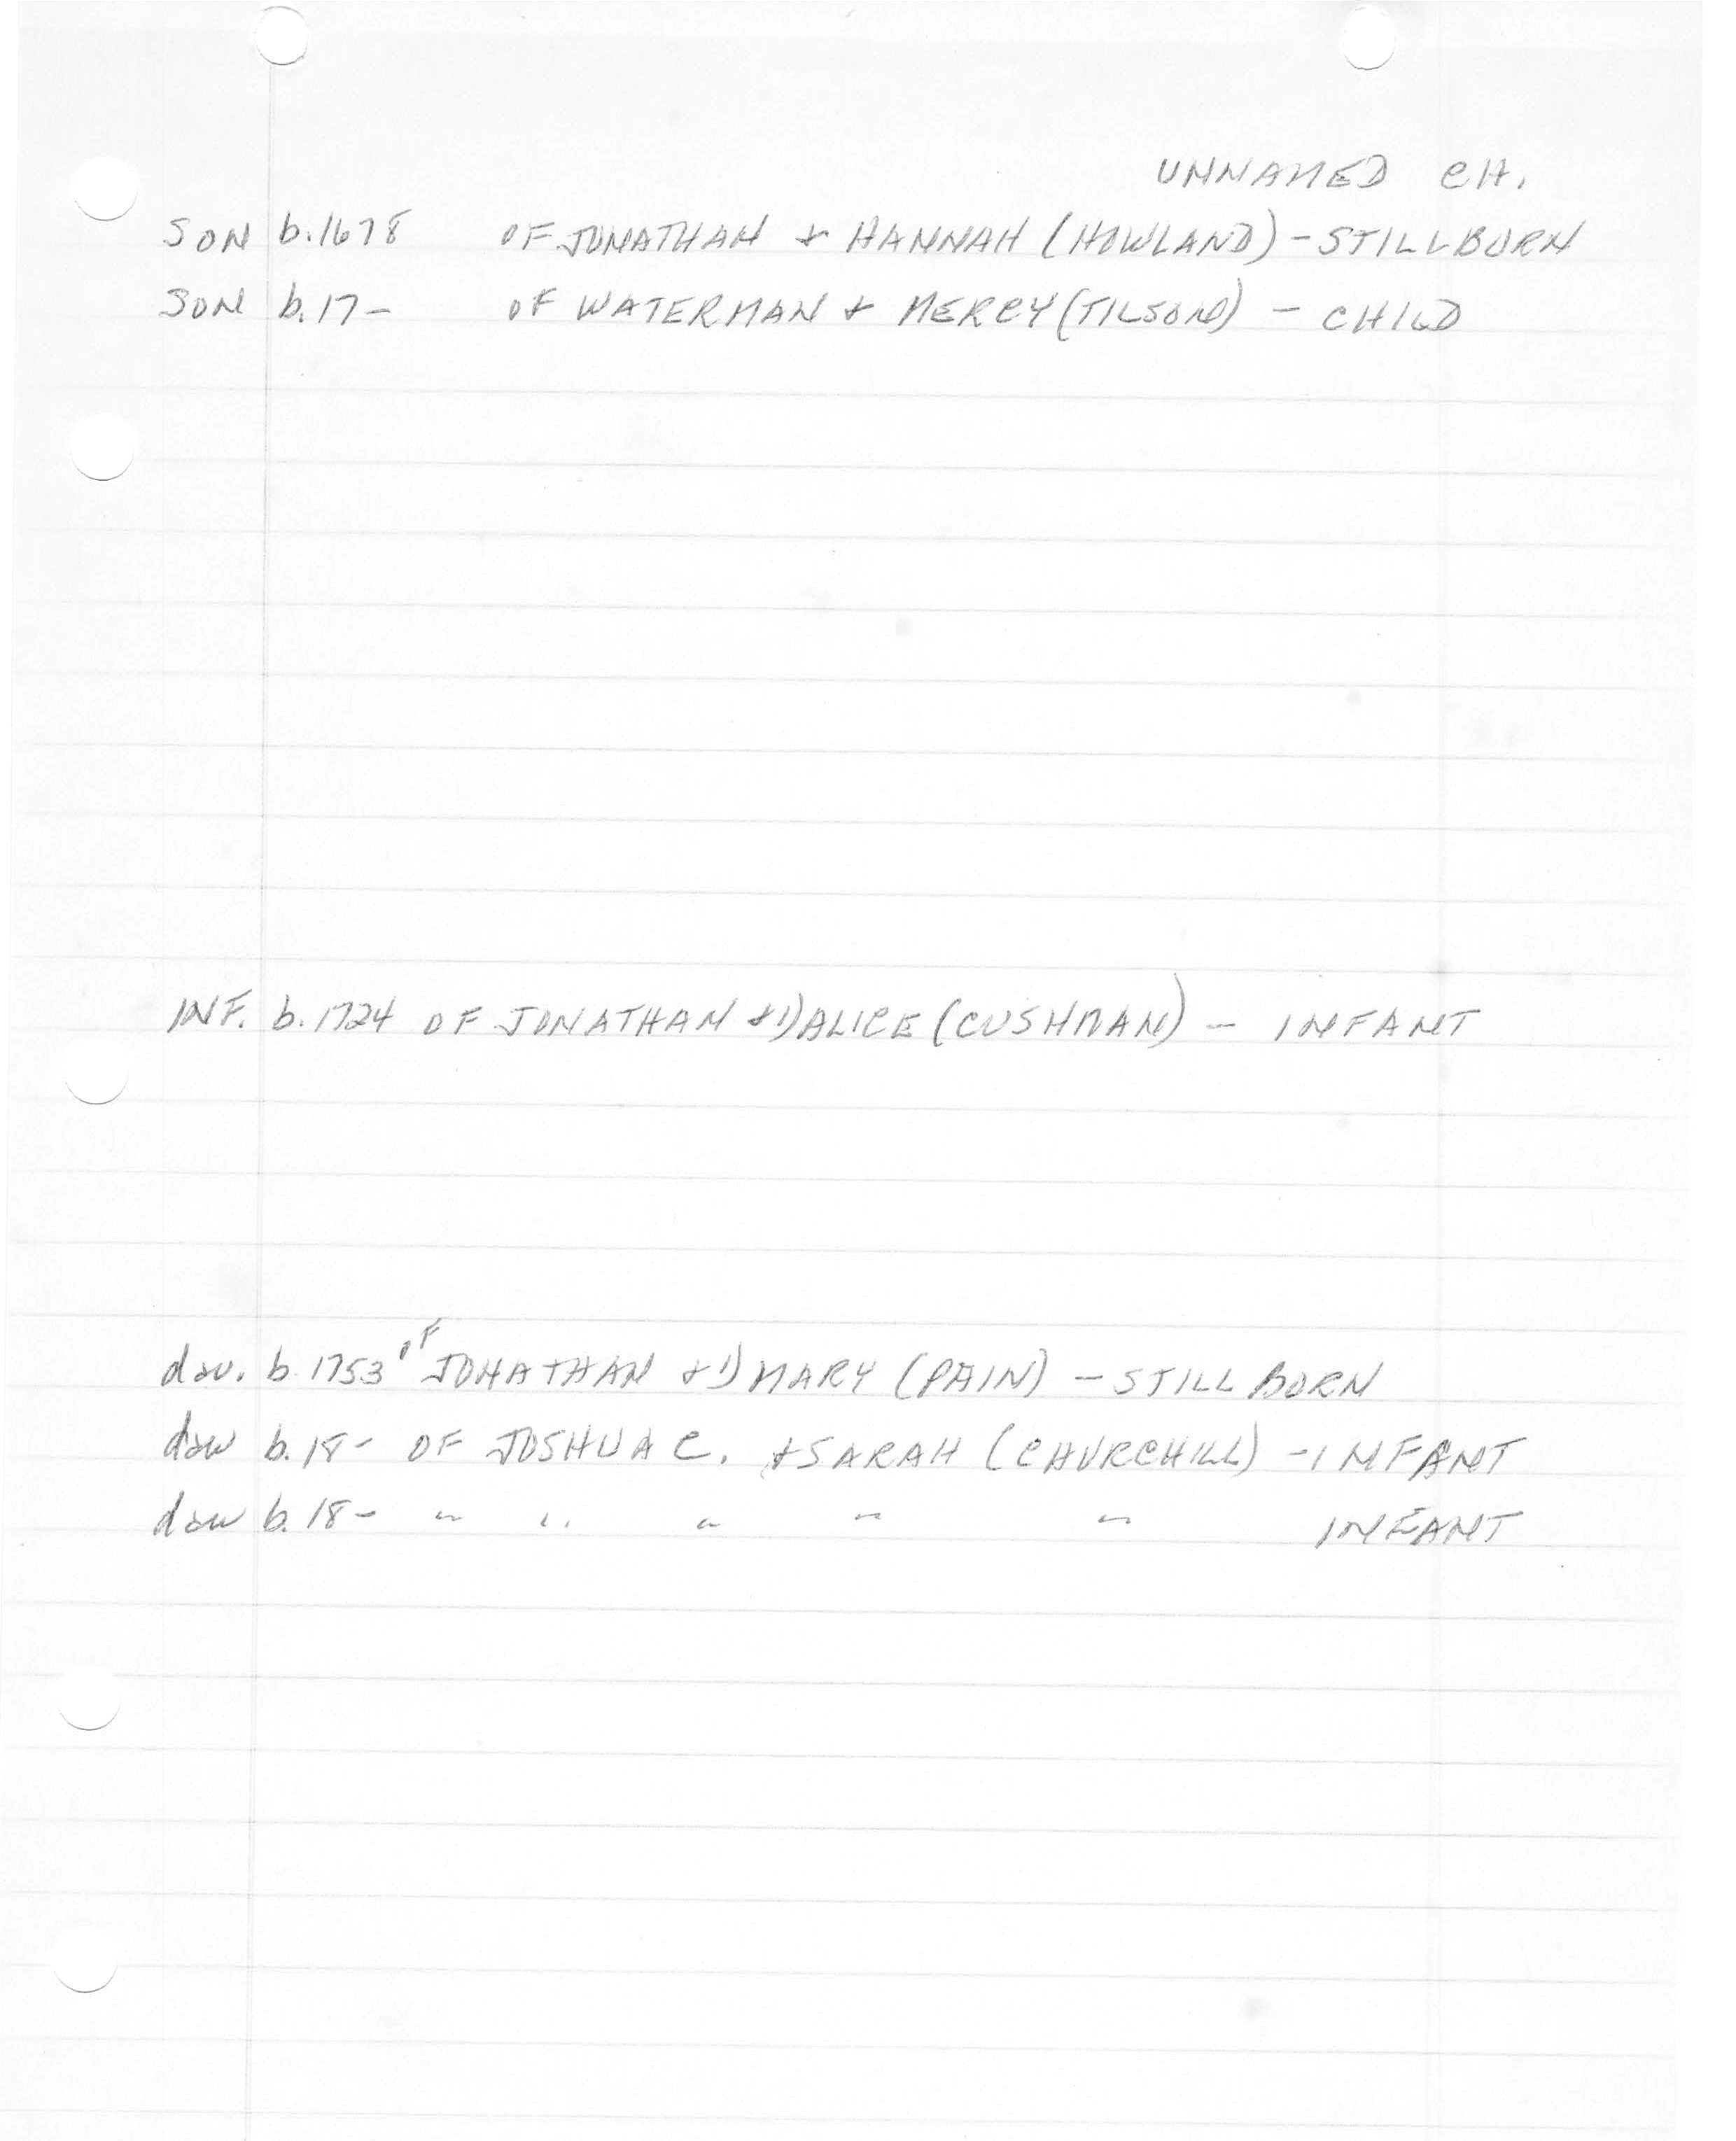 UNNAMED CH.
SON b.1678 OF JONATHAN + HANNAH (HOWLAND) - STILLBORN
SON b.17- OF WATERMAN + MERCY (TILSON) - CHILD
INF. b.1724 OF JONATHAN +1) ALICE (CUSHMAN) - INFANT
dau. b.1753 OF JONATHAN +1) MARY (PAIN) - STILLBORN
dau b.18- OF JOSHUA C. + SARAH (CHURCHILL) - INFANT
dau b.18- " " " " " INFANT